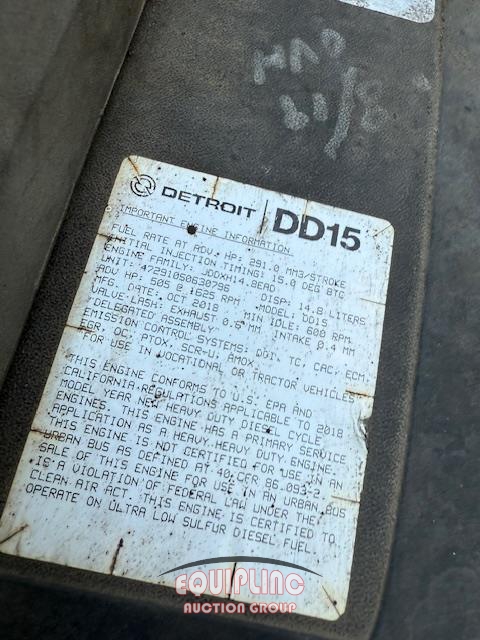 DETROIT DD15
IMPORTANT ENGINE INFORMATION
FUEL RATE AT ADV. HP: 291.0 MM3/STROKE
INITIAL INJECTION TIMING: 15.0 DEG BTC
ENGINE FAMILY: JDDXH14.8EAD DISP: 14.8 LITERS
UNIT: 472910S0630796 MODEL: DD15
ADV HP: 505 @ 1625 RPM
MFG. DATE: OCT 2018 MIN IDLE: 600 RPM
VALVE LASH: EXHAUST 0.5 MM, INTAKE 0.4 MM
"DELEGATED ASSEMBLY"
EMISSION CONTROL SYSTEMS: DDI, TC, CAC, ECM,
EGR, OC, PTOX, SCR-U, AMOX
FOR USE IN VOCATIONAL OR TRACTOR VEHICLES
THIS ENGINE CONFORMS TO U.S. EPA AND
CALIFORNIA REGULATIONS APPLICABLE TO 2018
MODEL YEAR NEW HEAVY DUTY DIESEL CYCLE
ENGINES. THIS ENGINE HAS A PRIMARY SERVICE
APPLICATION AS A HEAVY HEAVY DUTY ENGINE.
THIS ENGINE IS NOT CERTIFIED FOR USE IN AN
URBAN BUS AS DEFINED AT 40 CFR 86.093-2.
SALE OF THIS ENGINE FOR USE IN AN URBAN BUS
IS A VIOLATION OF FEDERAL LAW UNDER THE
CLEAN AIR ACT. THIS ENGINE IS CERTIFIED TO
OPERATE ON ULTRA LOW SULFUR DIESEL FUEL.
EQUIPLINC
AUCTION GROUP